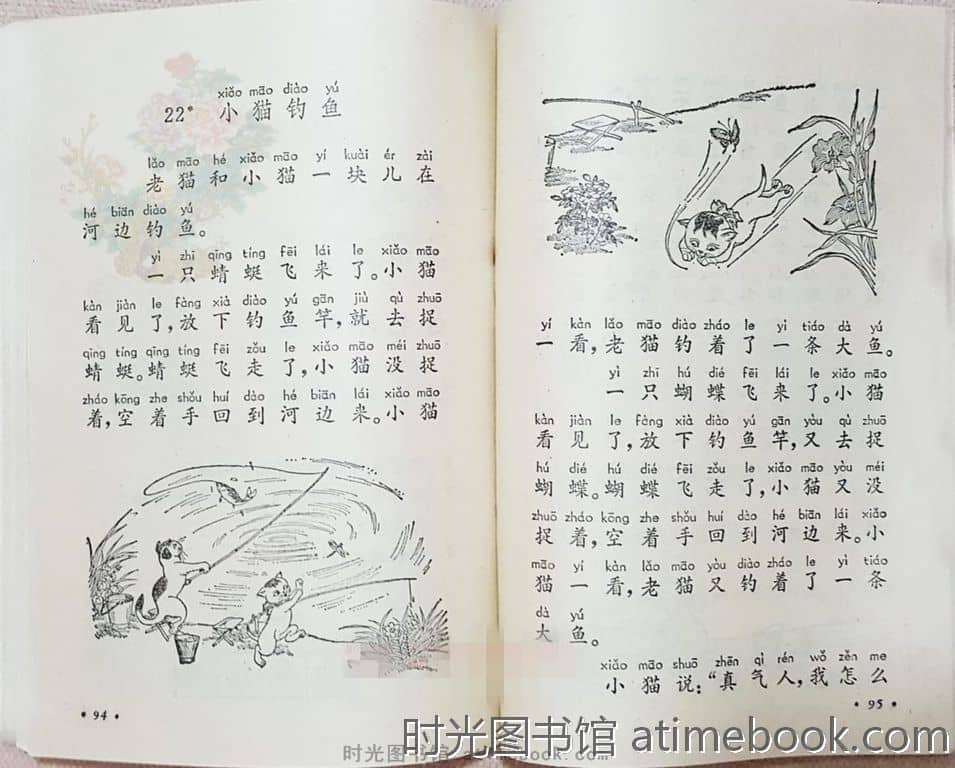 xiǎo māo diào yú
22* 小猫钓鱼
lǎo māo hé xiǎo māo yí kuài ér zài
老猫和小猫一块儿在
hé biān diào yú
河边钓鱼。
yì zhī qīng tíng fēi lái le xiǎo māo
一只蜻蜓飞来了。小猫
kàn jiàn le fàng xià diào yú gān jiù qù zhuō
看见了,放下钓鱼竿,就去捉
qīng tíng qīng tíng fēi zǒu le xiǎo māo méi zhuō
蜻蜓。蜻蜓飞走了,小猫没捉
zháo kōng zhe shǒu huí dào hé biān lái xiǎo māo
着,空着手回到河边来。小猫
• 94 •
yí kàn lǎo māo diào zháo le yì tiáo dà yú
一看,老猫钓着了一条大鱼。
yì zhī hú dié fēi lái le xiǎo māo
一只蝴蝶飞来了。小猫
kàn jiàn le fàng xià diào yú gān yòu qù zhuō
看见了,放下钓鱼竿,又去捉
hú dié hú dié fēi zǒu le xiǎo māo yòu méi
蝴蝶。蝴蝶飞走了,小猫又没
zhuō zháo kōng zhe shǒu huí dào hé biān lái xiǎo
捉着,空着手回到河边来。小
māo yí kàn lǎo māo yòu diào zháo le yì tiáo
猫一看,老猫又钓着了一条
dà yú
大鱼。
xiǎo māo shuō zhēn qì rén wǒ zěn me
小猫说:“真气人,我怎么
• 95 •
时光图书馆 atimebook.com
时光图书馆 atimebook.com